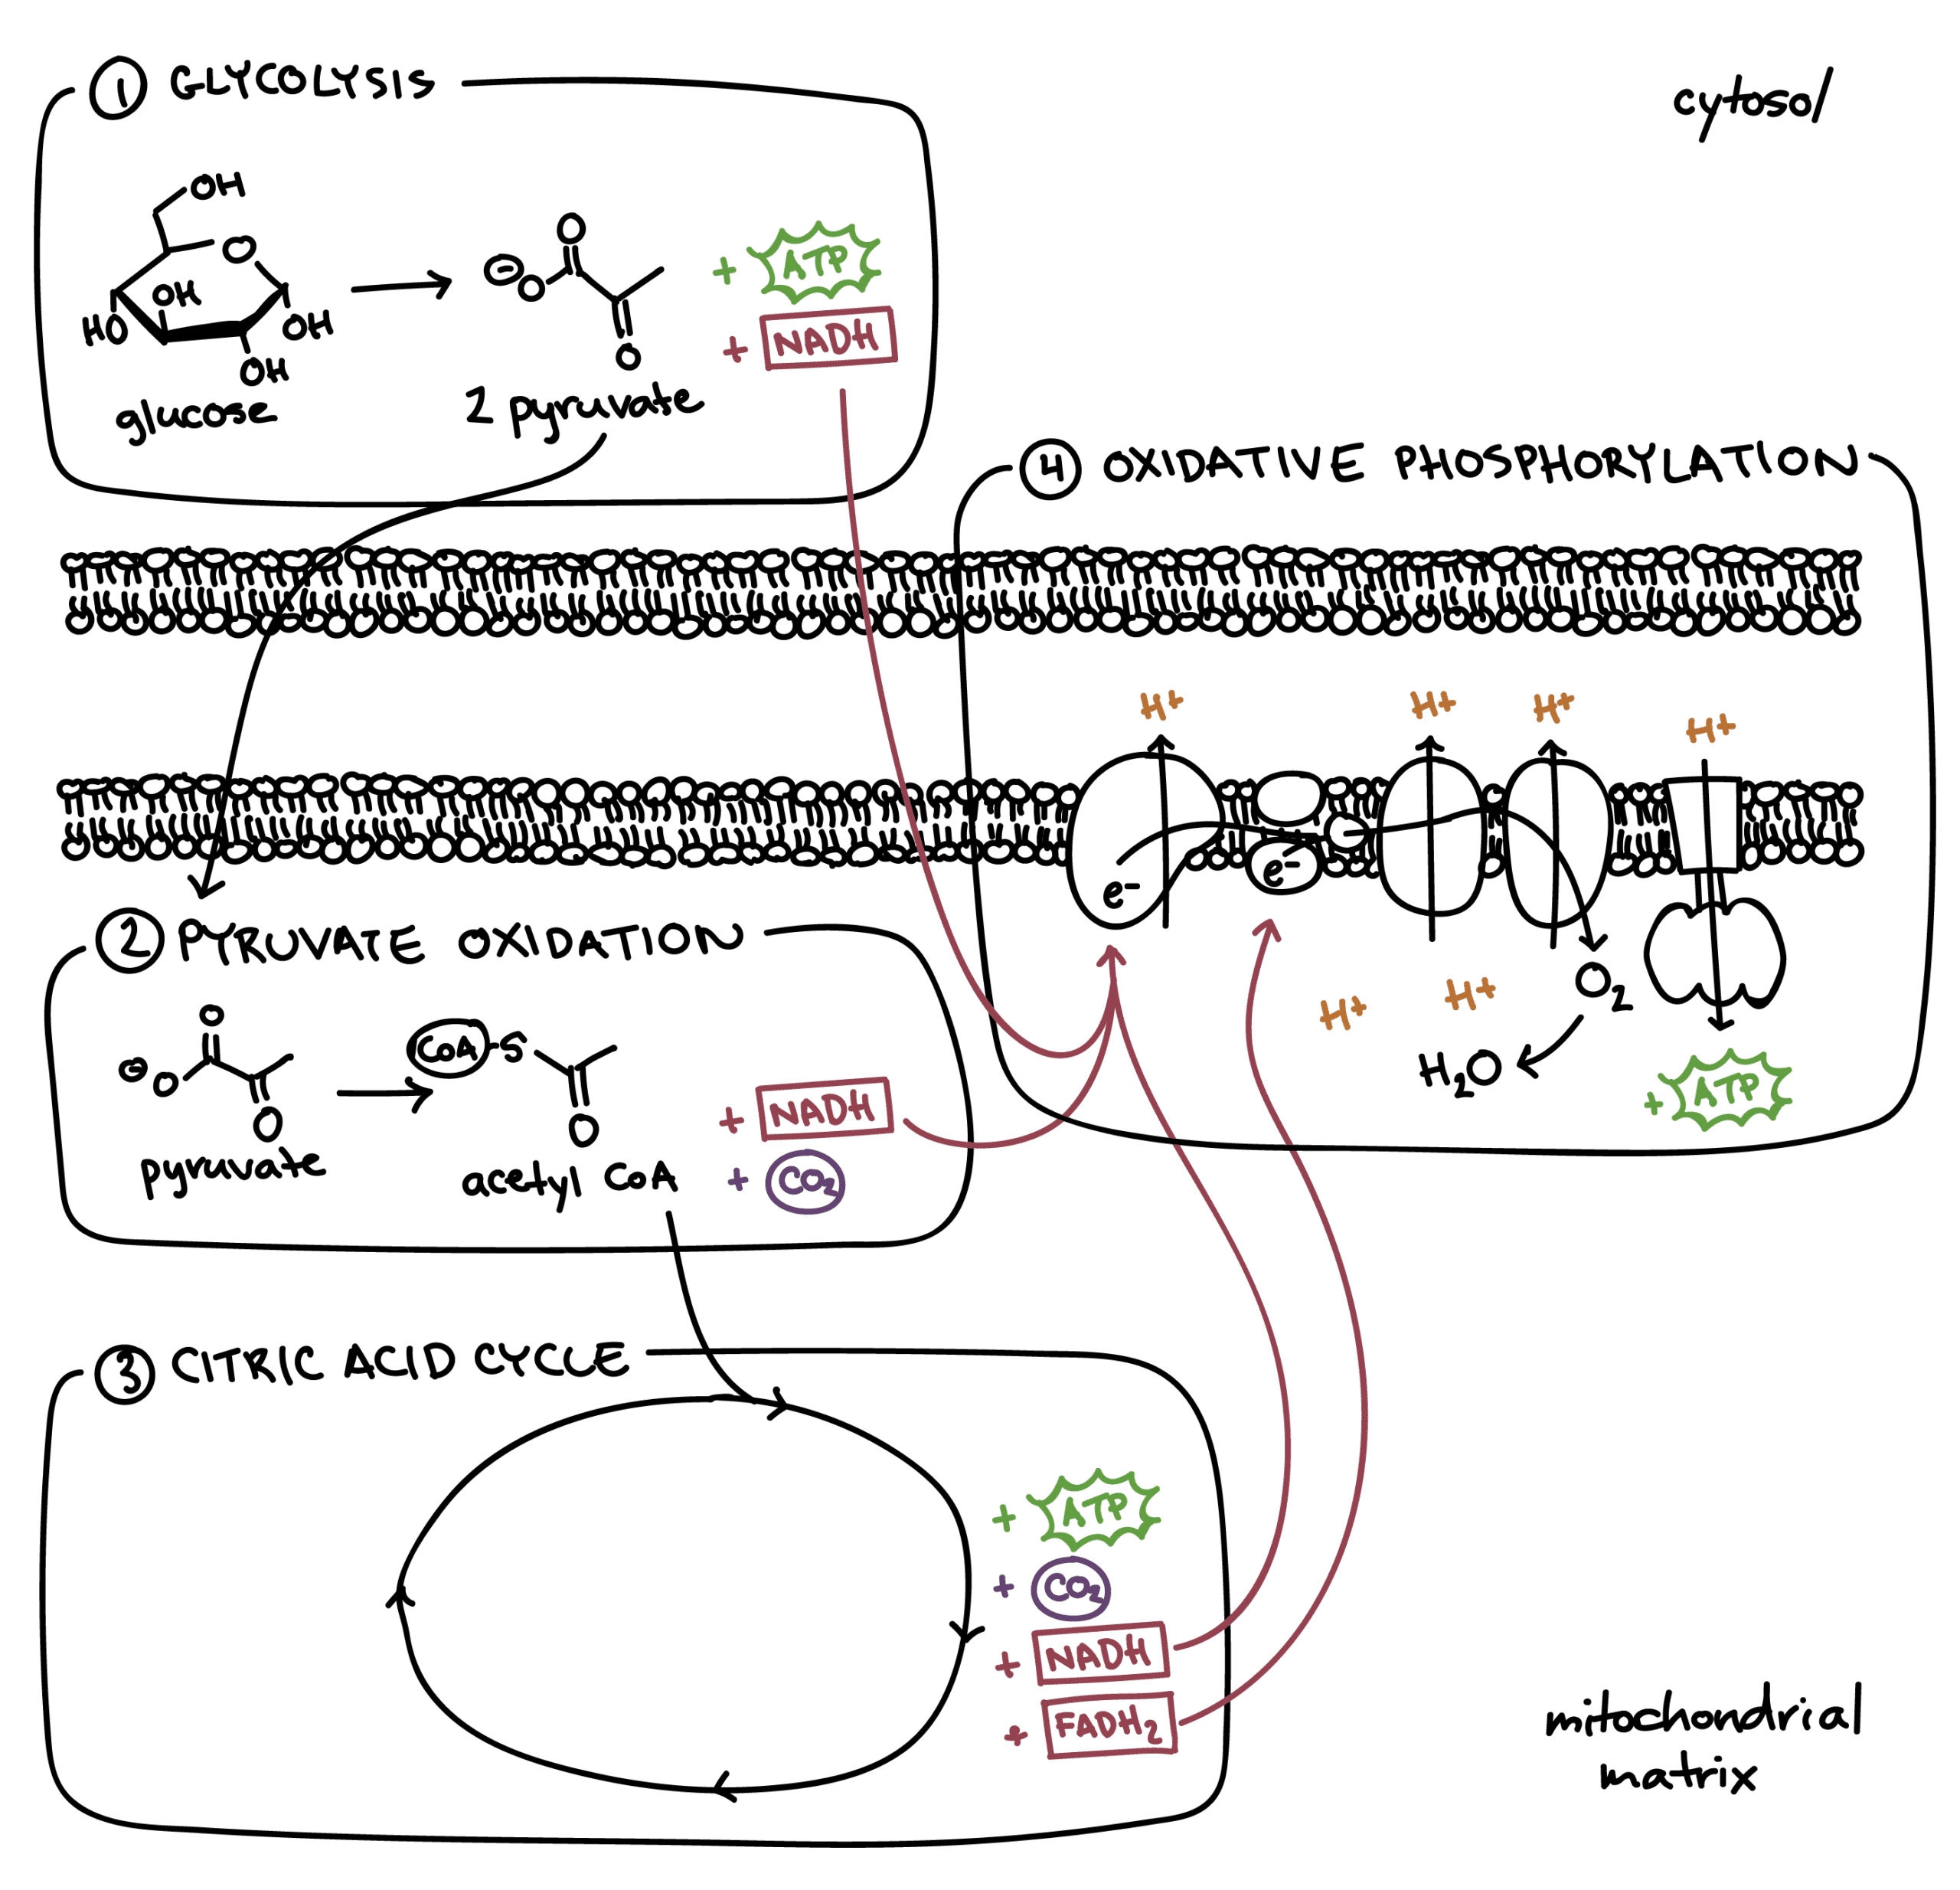 1 GLYCOLYSIS
cytosol
OH
O
OH
HO
OH
OH
glucose
O
⊖O
O
2 pyruvate
+ ATP
+ NADH
4 OXIDATIVE PHOSPHORYLATION
H+ H+ H+ H+
e- e-
H+ H+
O2
H2O
+ ATP
2 PYRUVATE OXIDATION
O
⊖O
O
pyruvate
CoA-S
O
acetyl CoA
+ NADH
+ CO2
3 CITRIC ACID CYCLE
+ ATP
+ CO2
+ NADH
+ FADH2
mitochondrial
matrix